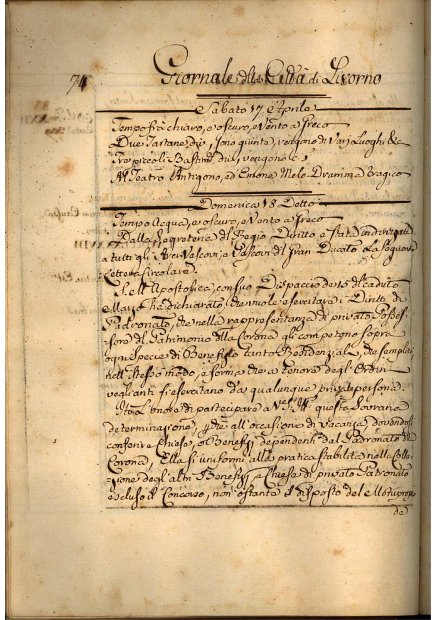 74 Giornale della Città di Livorno
Sabato 17 Aprile
Tempo frà chiaro, e oscuro, e Vento a freco
Due Tartane sono giunte, vengono di Varj Luoghi &
Tre piccoli Bastim.ti vengono &
Al Teatro Antigono, ed Enone Melo Dramma Tragico
Domenica 18 Detto
Tempo Acqua, e oscuro, e Vento a freco
Dalla Segreteria del Regio Diritto è stata indirizzata
a tutti gli Arcivescovi, e Vescovi del Gran Ducato La Seguente
Lettera Circolare
S. e R. Apostolica, con suo Dispaccio de 15 del caduto
Marzo ha dichiarato, che vuole esercitare i Diritti di
Padronato, che nella rappresentanza di privato Posses-
sore del Patrimonio della Corona gli competono sopra
ogni Specie di Benefizio tanto Residenziale, che semplice
nell'Stesso modo, e forma, che a tenore degl'Ordini
veglianti si esercitano da qualunque privata persona.
L'onore di partecipare a V. questa Sovrana
determinazione, che all'occasione di Vacanza dovendosi
conferire Chiese, o Benefizj dependenti dal Padronato della
Corona, Ella si uniformi alla pratica stabilita nella Colla-
zione degl'altri Benefizj, e Chiese di privato Patronato
escluso il Concorso, non ostante il disposto del Motuproprio
de